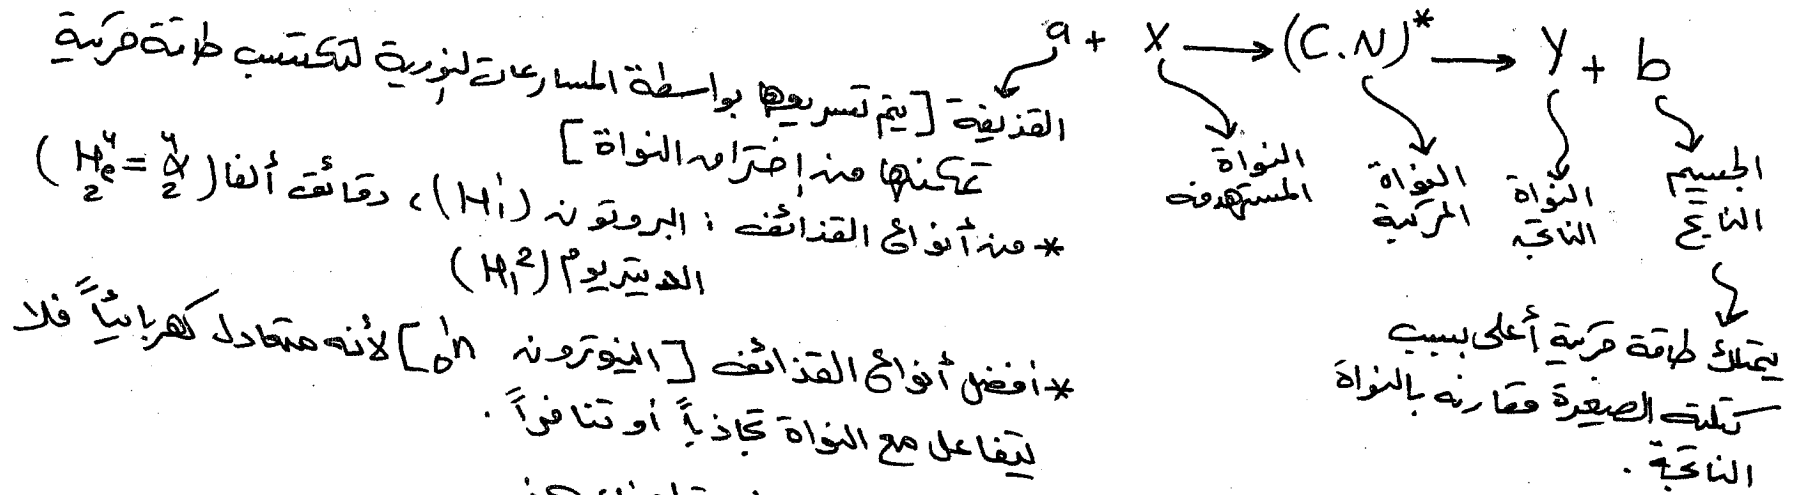 a + X → (C.N)* → Y + b
القذيفة [يتم تسريعها بواسطة المسارعات النووية لتكتسب طاقة حركية
تمكنها من إختراق النواة]
النواة المستهدفة
النواة المركبة
النواة الناتجة
الجسيم الناتج
* من أنواع القذائف : البروتون (H₁¹)، دقائق ألفا (₂He⁴ = ₂α⁴)
الديتريوم (H₁²)
* أفضل أنواع القذائف [النيوترون ₀n¹] لأنه متعادل كهربائياً فلا
يتفاعل مع النواة تجاذباً أو تنافراً .
يمتلك طاقة حركية أعلى بسبب
كتلته الصغيرة مقارنه بالنواة
الناتجة .